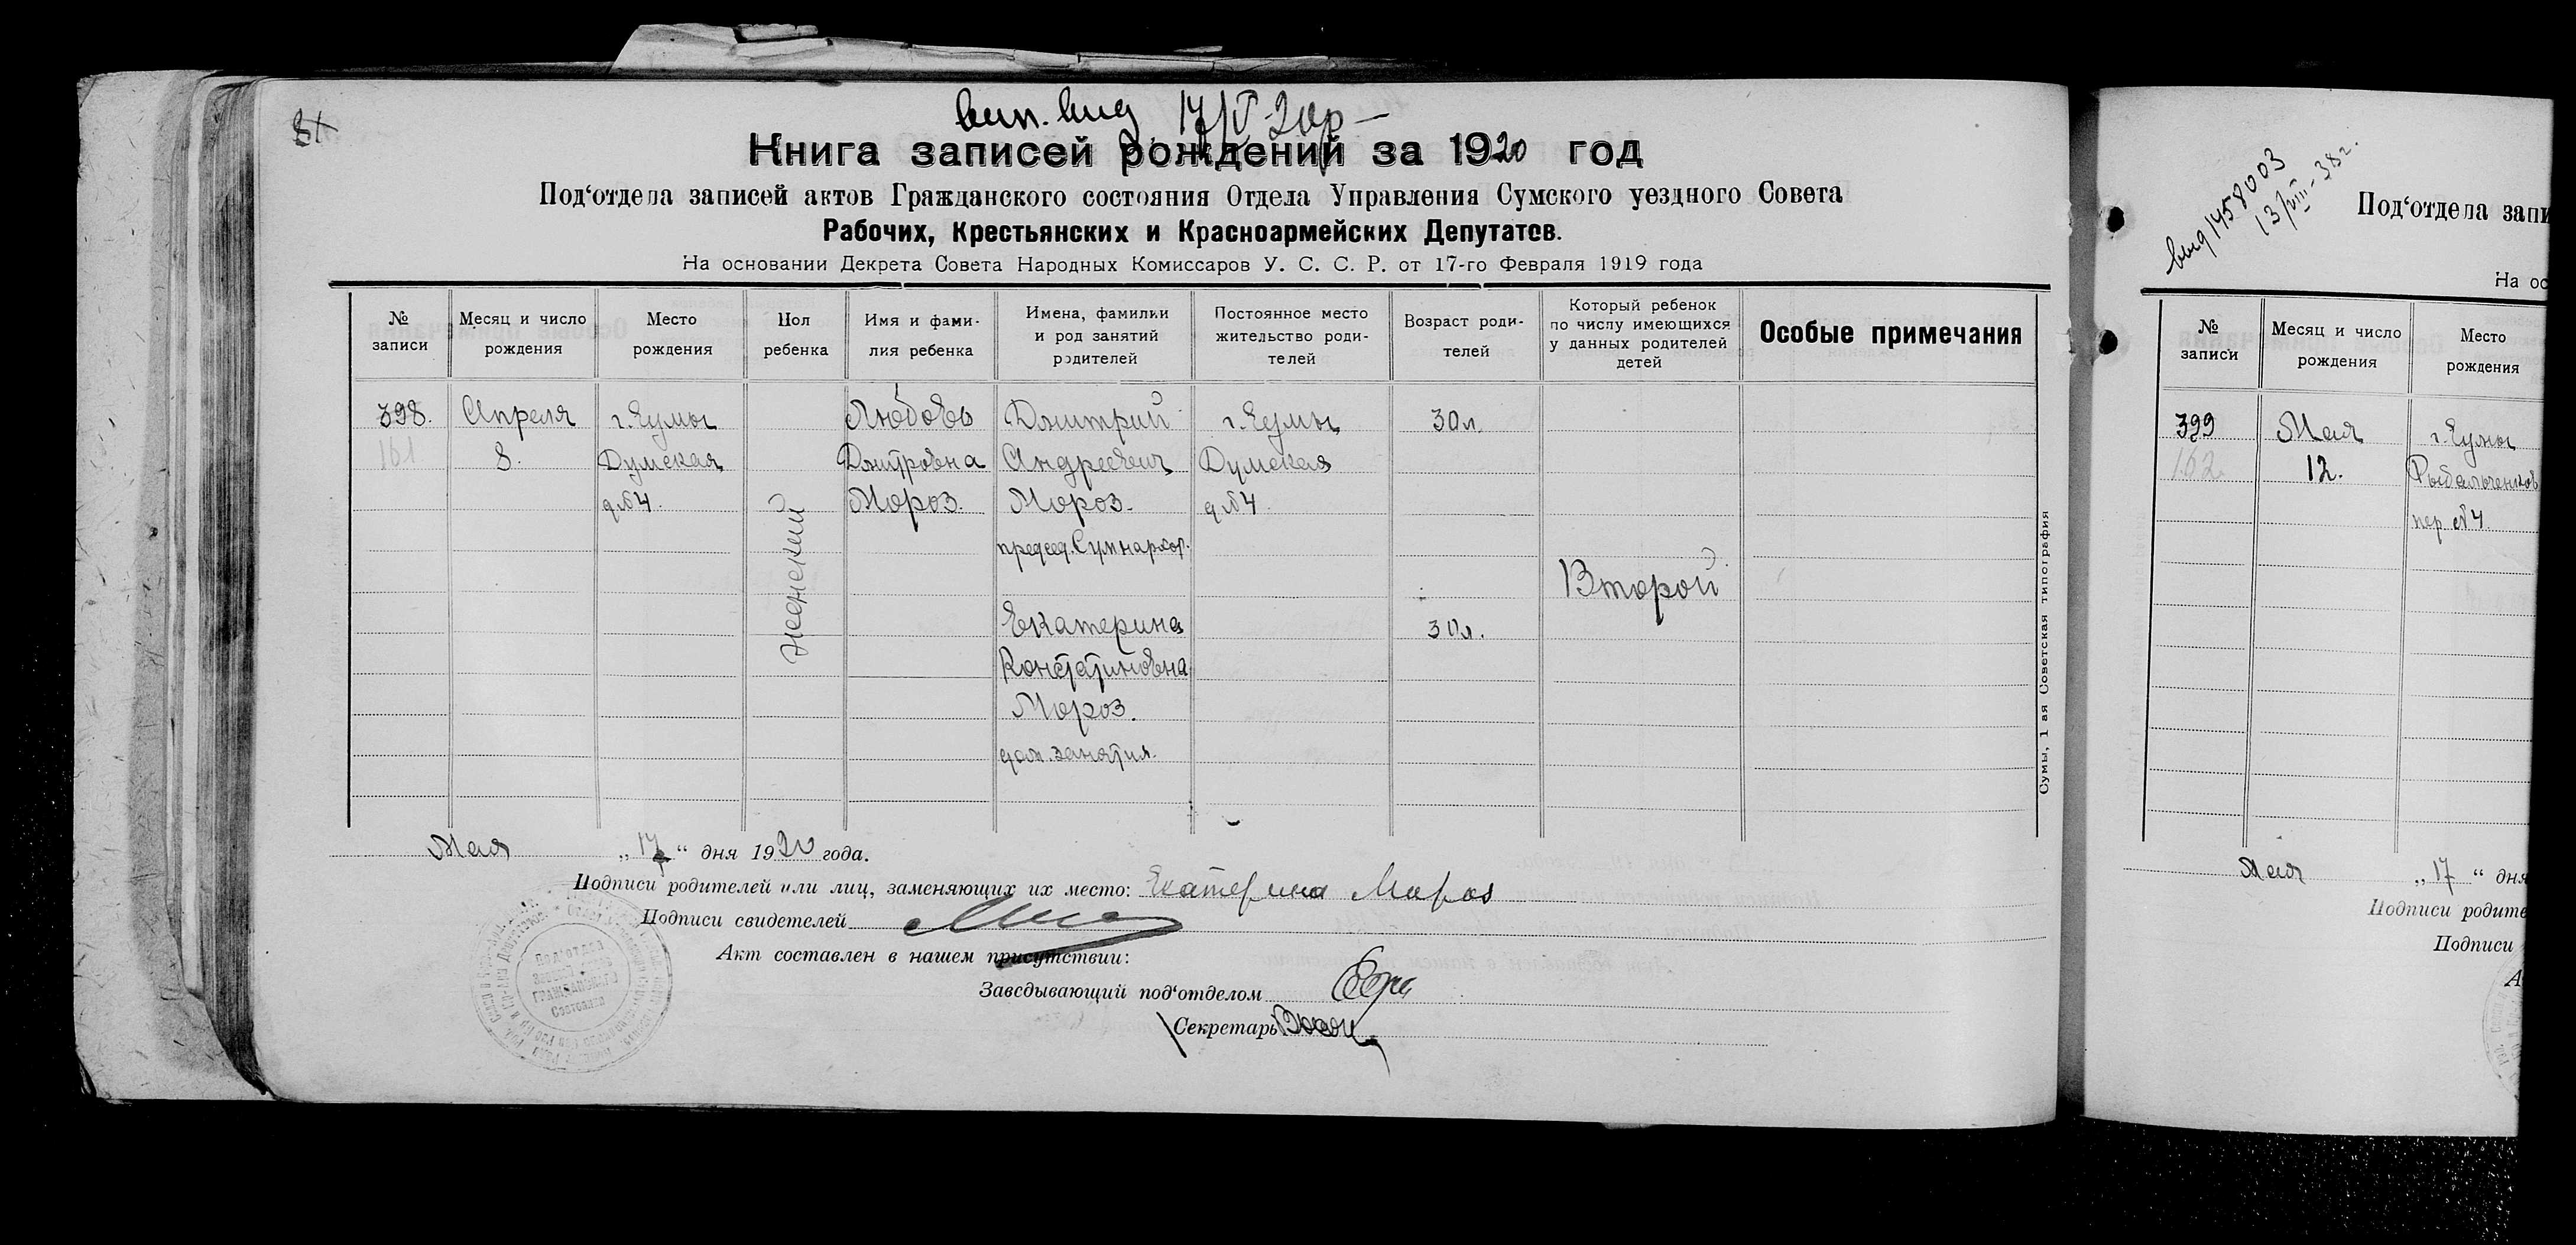 вып. выд. 17/V-20р
Книга записей рождений за 1920 год
Под‘отдела записей актов Гражданского состояния Отдела Управления Сумского уездного Совета
Рабочих, Крестьянских и Красноармейских Депутатов.
На основании Декрета Совета Народных Комиссаров У. С. С. Р. от 17-го Февраля 1919 года
№ записи
Месяц и число рождения
Место рождения
Пол ребенка
Имя и фами-
лия ребенка
Имена, фамилии
и род занятий
родителей
Постоянное место
жительство роди-
телей
Возраст роди-
телей
Который ребенок
по числу имеющихся
у данных родителей
детей
Особые примечания
398.
161
Апреля
8.
г. Сумы
Думская
д. № 4.
женский
Любовь
Дмитровна
Мороз.
Дмитрий
Андреевич
Мороз.
председ. Сумнархоз.
Екатерина
Константиновна
Мороз.
дом. занятия.
г. Сумы
Думская
д № 4
30 л.
30 л.
Второй
Сумы, 1 ая Советская типография
Мая „17“ дня 1920 года.
Подписи родителей или лиц, заменяющих их место: Екатерина Мороз
Подписи свидетелей
Акт составлен в нашем присутствии:
Заведывающий под‘отделом
Секретарь
Под‘отдел
Записей Актов
ГРАЖДАНСКОГО
Состояния
выд 1458003
13/VIII-38 г.
Под‘отдела запи
На ос
№ записи
Месяц и число рождения
Место рождения
399
162.
Мая
12.
г. Сумы
Рыбальченков
пер. № 4.
Мая „17“ дня
Подписи родите
Подписи
А